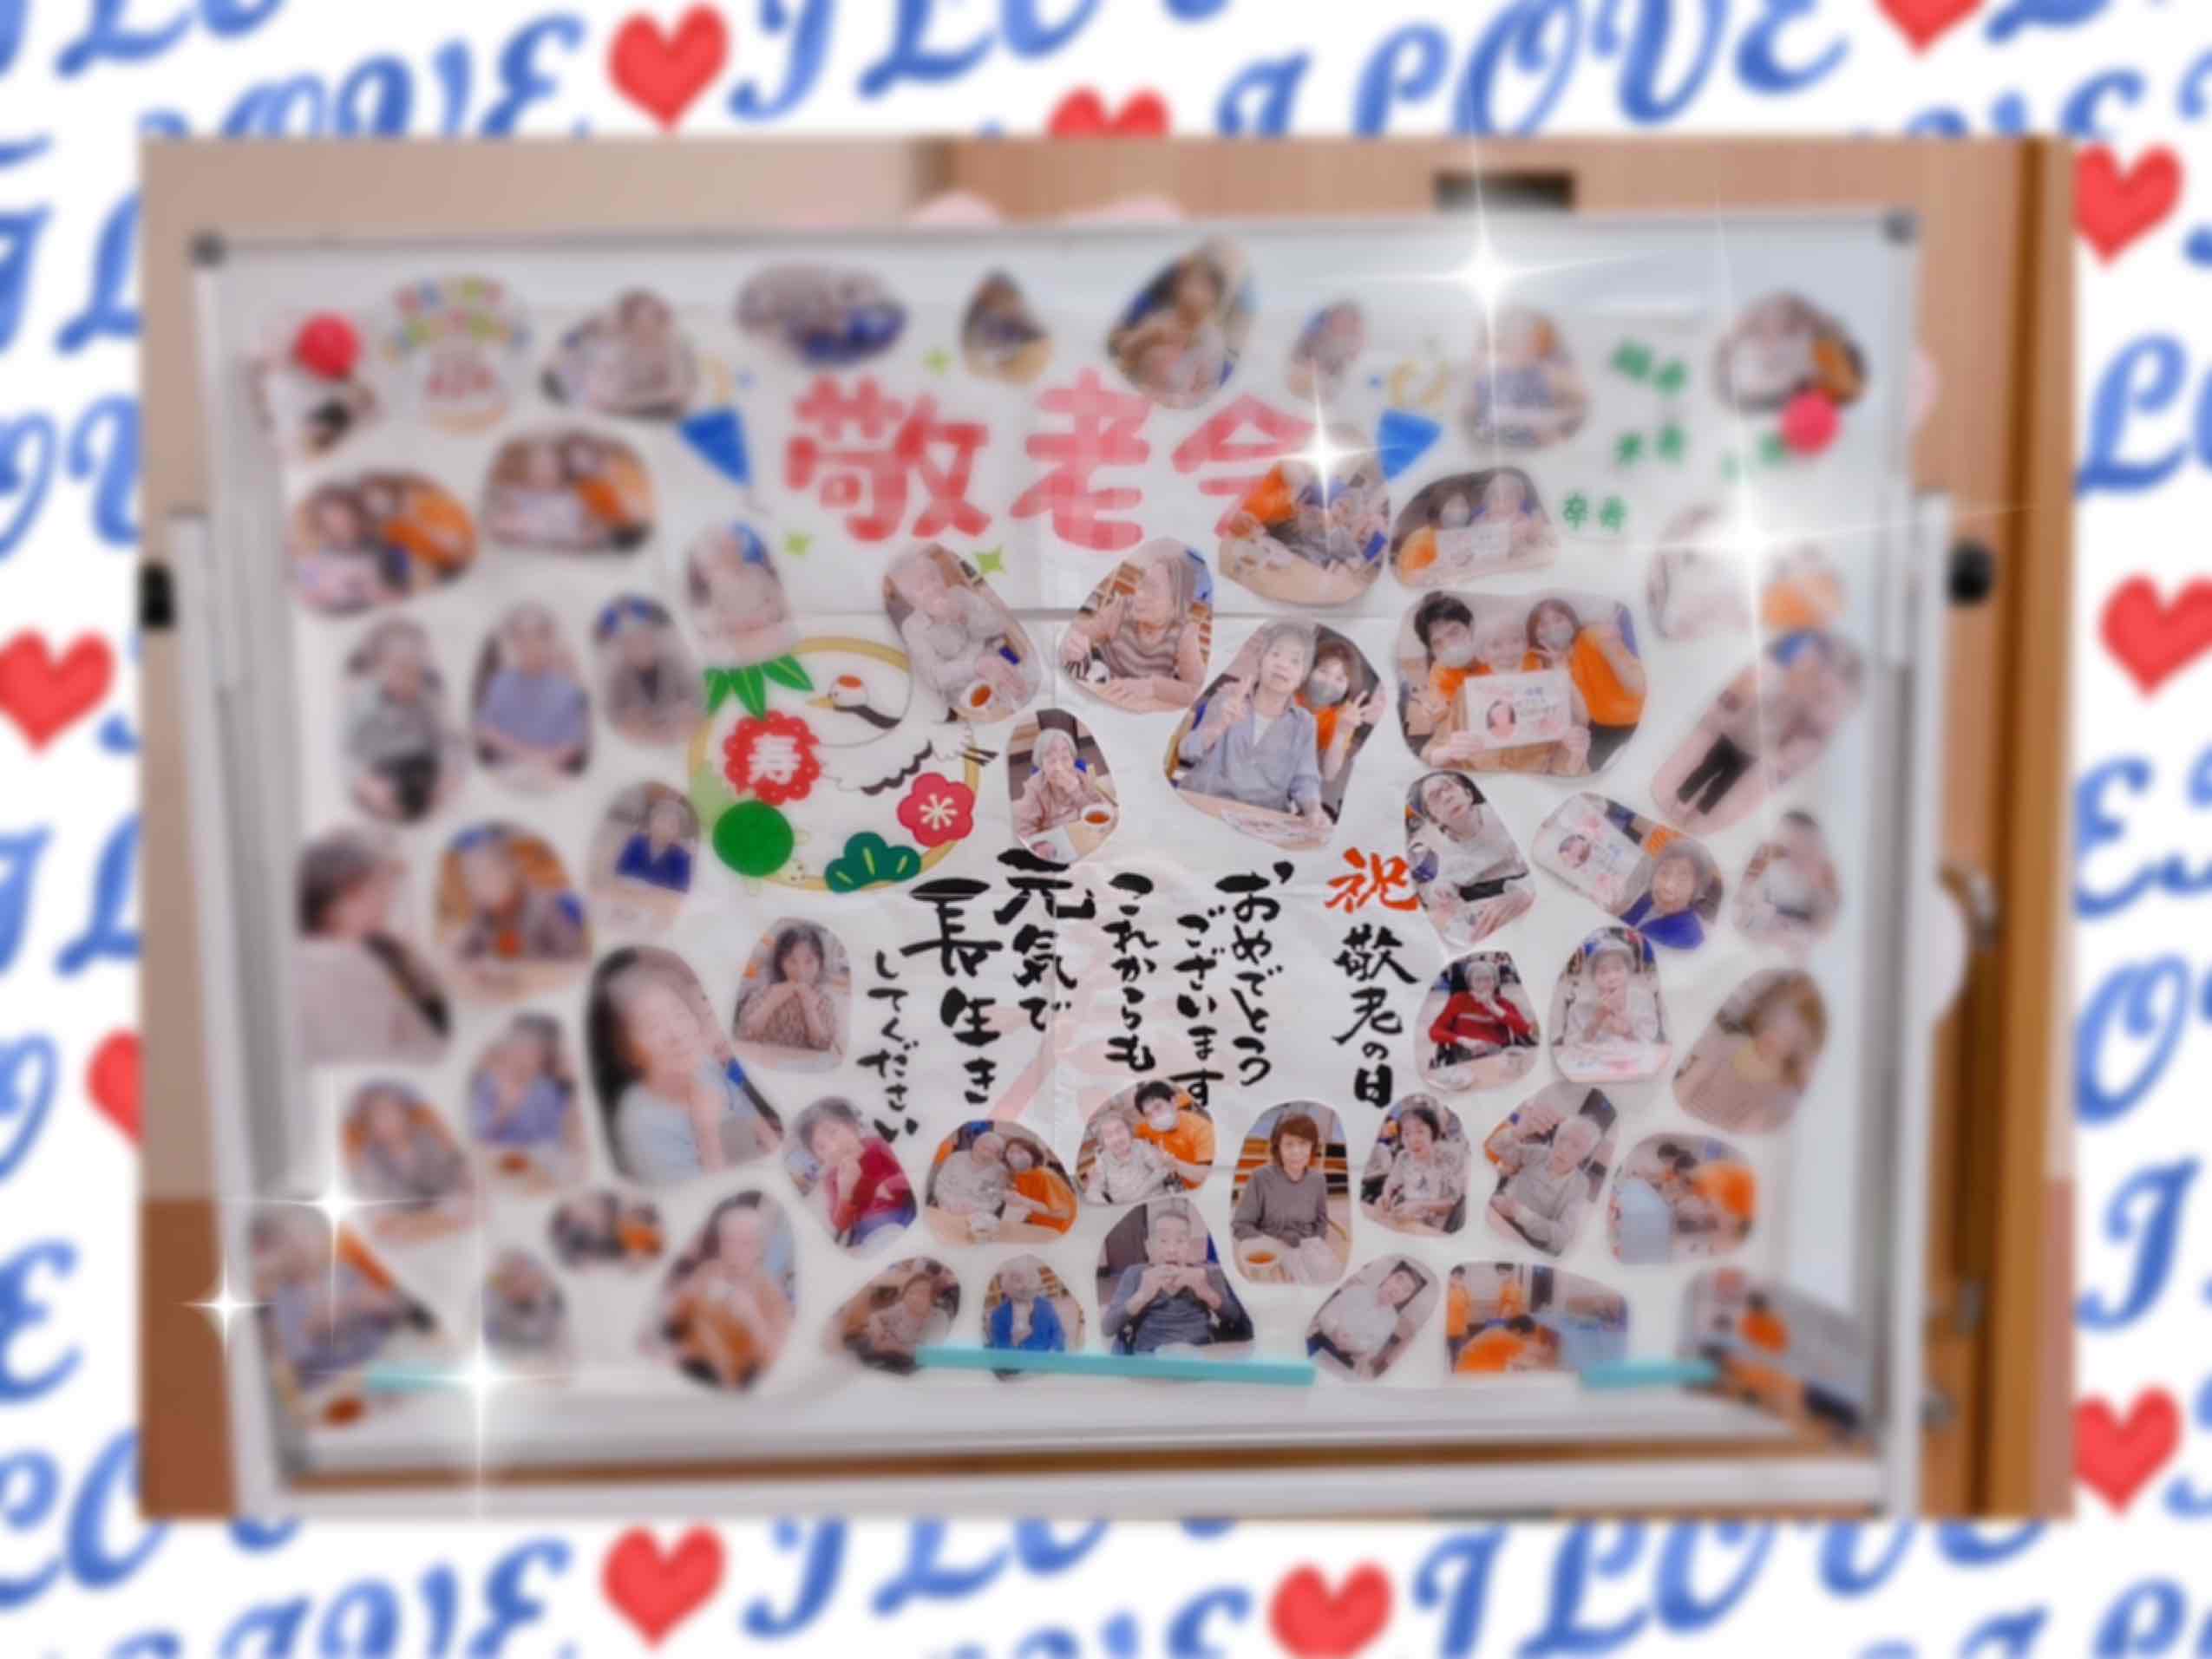 敬老会
寿
祝 敬老の日
おめでとう
ございます
これからも
元気で
長生き
してください
I LOVE